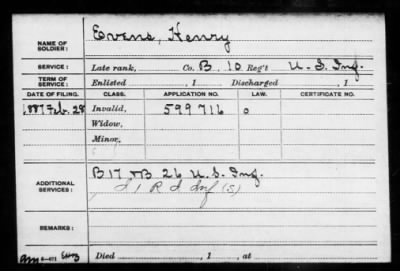 NAME OF SOLDIER: Evans, Henry
SERVICE: Late rank, Co. B, 10 Reg't U. S. Inf.
TERM OF SERVICE: Enlisted , 1 Discharged , 1
DATE OF FILING. CLASS. APPLICATION NO. LAW. CERTIFICATE NO.
1887 Feb. 28 Invalid, 599716 o
Widow,
Minor,
ADDITIONAL SERVICES: B 17 & B 26 U. S. Inf.
Inf (S)
REMARKS:
Died , 1 , at